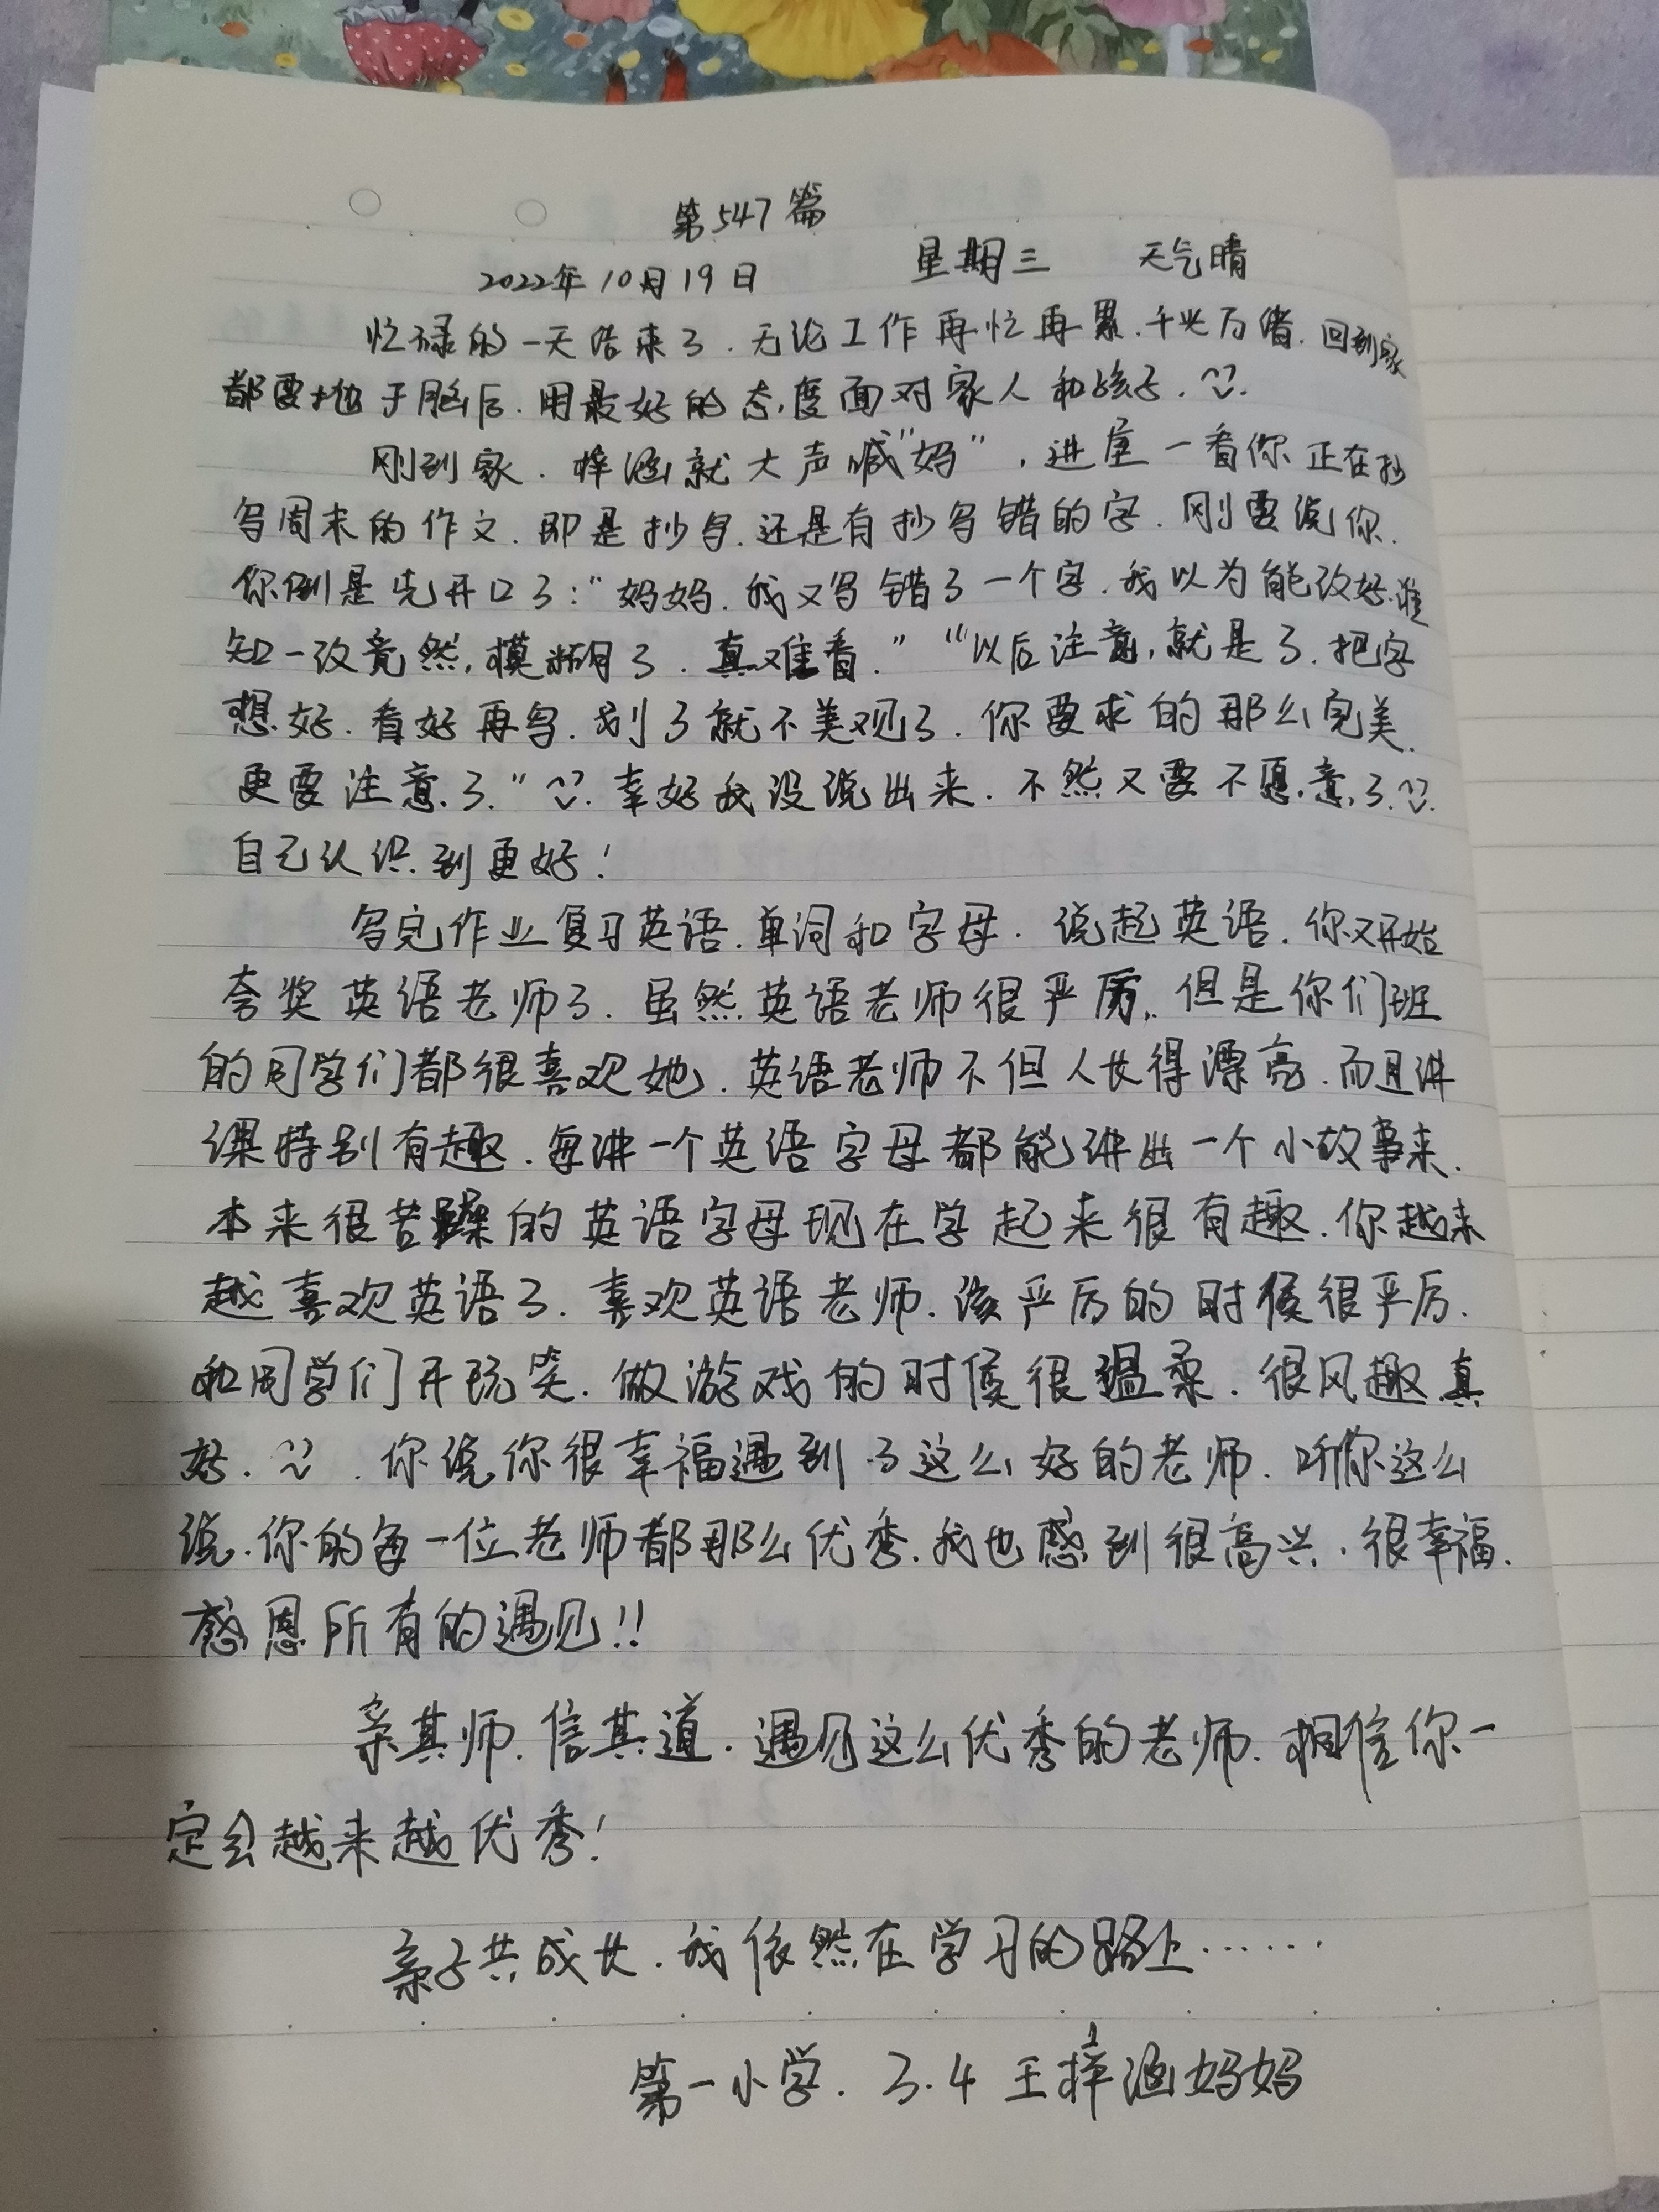 第547篇
2022年10月19日 星期三 天气晴
忙碌的一天结束了.无论工作再忙再累.千头万绪.回到家
都要抛于脑后.用最好的态度面对家人和孩子.
刚到家.梓涵就大声喊"妈",进屋一看你正在抄
写周末的作文.即是抄写.还是有抄写错的字.刚要说你.
你倒是先开口了:"妈妈.我又写错了一个字.我以为能改好.谁
知一改竟然,模糊了.真难看.""以后注意,就是了.把字
想好.看好再写.划了就不美观了.你要求的那么完美.
更要注意了."幸好我没说出来.不然又要不愿意了.
自己认识到更好!
写完作业复习英语.单词和字母.说起英语.你又开始
夸奖英语老师了.虽然英语老师很严厉,.但是你们班
的同学们都很喜欢她.英语老师不但人长得漂亮.而且讲
课特别有趣.每讲一个英语字母都能讲出一个小故事来.
本来很苦躁的英语字母现在学起来很有趣.你越来
越喜欢英语了.喜欢英语老师.该严厉的时候很严厉.
和同学们开玩笑.做游戏的时候很温柔.很风趣.真
好..你说你很幸福遇到了这么好的老师.听你这么
说.你的每一位老师都那么优秀.我也感到很高兴.很幸福.
感恩所有的遇见!!
亲其师.信其道.遇见这么优秀的老师.相信你一
定会越来越优秀!
亲子共成长.我依然在学习的路上……
第一小学.3.4王梓涵妈妈